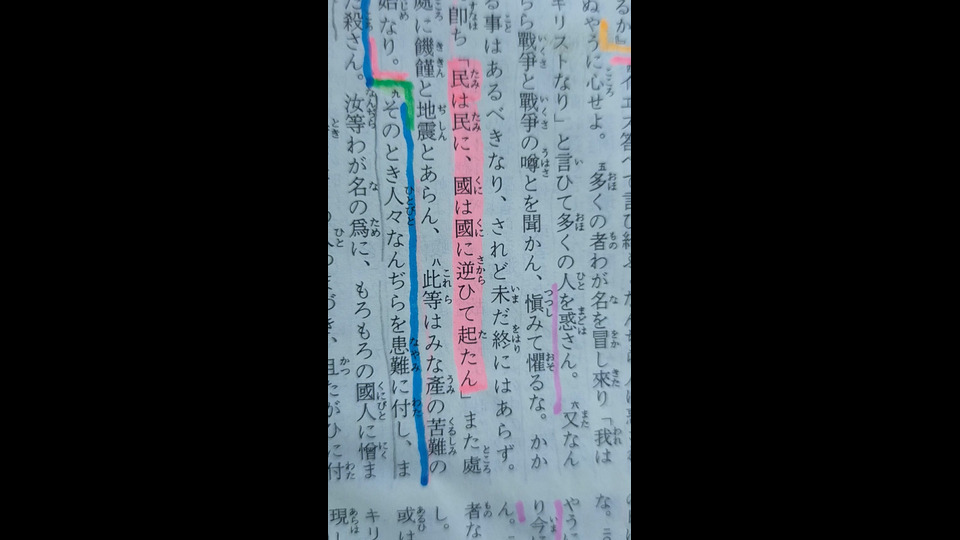 るか』イエス答へて言ひ給ふ
ぬやうに心せよ。五多くの者わが名を冒し來り『我は
キリストなり』と言ひて多くの人を惑さん。六又なん
ぢら戰爭と戰爭の噂とを聞かん、愼みて懼るな。かか
る事はあるべきなり、されど未だ終にはあらず。
卽ち「民は民に、國は國に逆ひて起たん」また處
處に饑饉と地震とあらん、八此等はみな產の苦難の
始なり。九そのとき人々なんぢらを患難に付し、ま
た殺さん。汝等わが名の爲に、もろもろの國人に憎ま
づき、且たがひに付
な。
やうに
り今
ん。
者な
し。
或は
キリ
現し